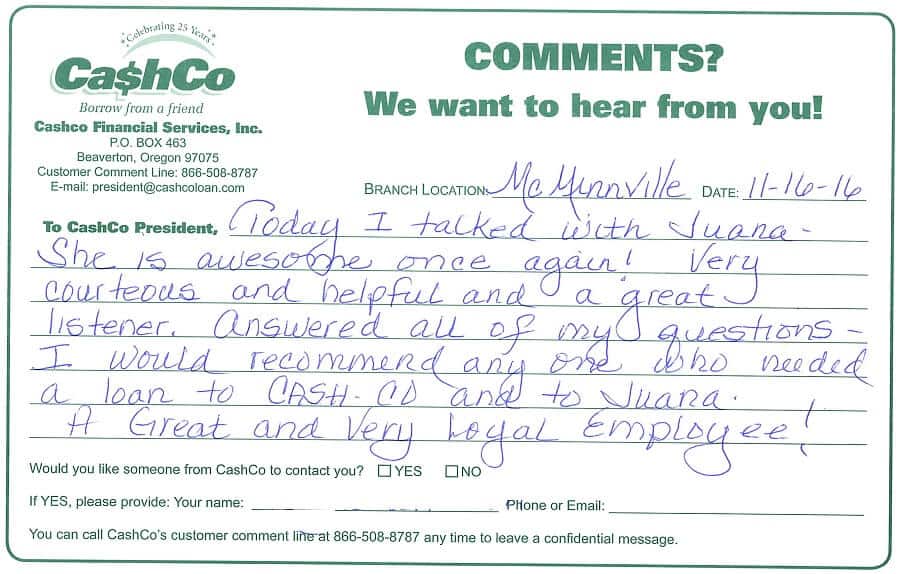 Celebrating 25 Years
Ca$hCo
Borrow from a friend
Cashco Financial Services, Inc.
P.O. BOX 463
Beaverton, Oregon 97075
Customer Comment Line: 866-508-8787
E-mail: president@cashcoloan.com
COMMENTS?
We want to hear from you!
BRANCH LOCATION: McMinnville DATE: 11-16-16
To CashCo President, Today I talked with Juana -
She is awesome once again! Very
courteous and helpful and a great
listener. Answered all of my questions -
I would recommend any one who needed
a loan to CASH-CO and to Juana.
A Great and Very Loyal Employee!
Would you like someone from CashCo to contact you? ☐ YES ☐ NO
If YES, please provide: Your name: Phone or Email:
You can call CashCo's customer comment line at 866-508-8787 any time to leave a confidential message.